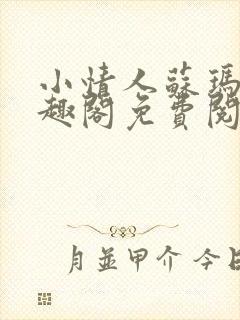 小情人蘇瑪
趣閣免費閱
月並甲介 今日